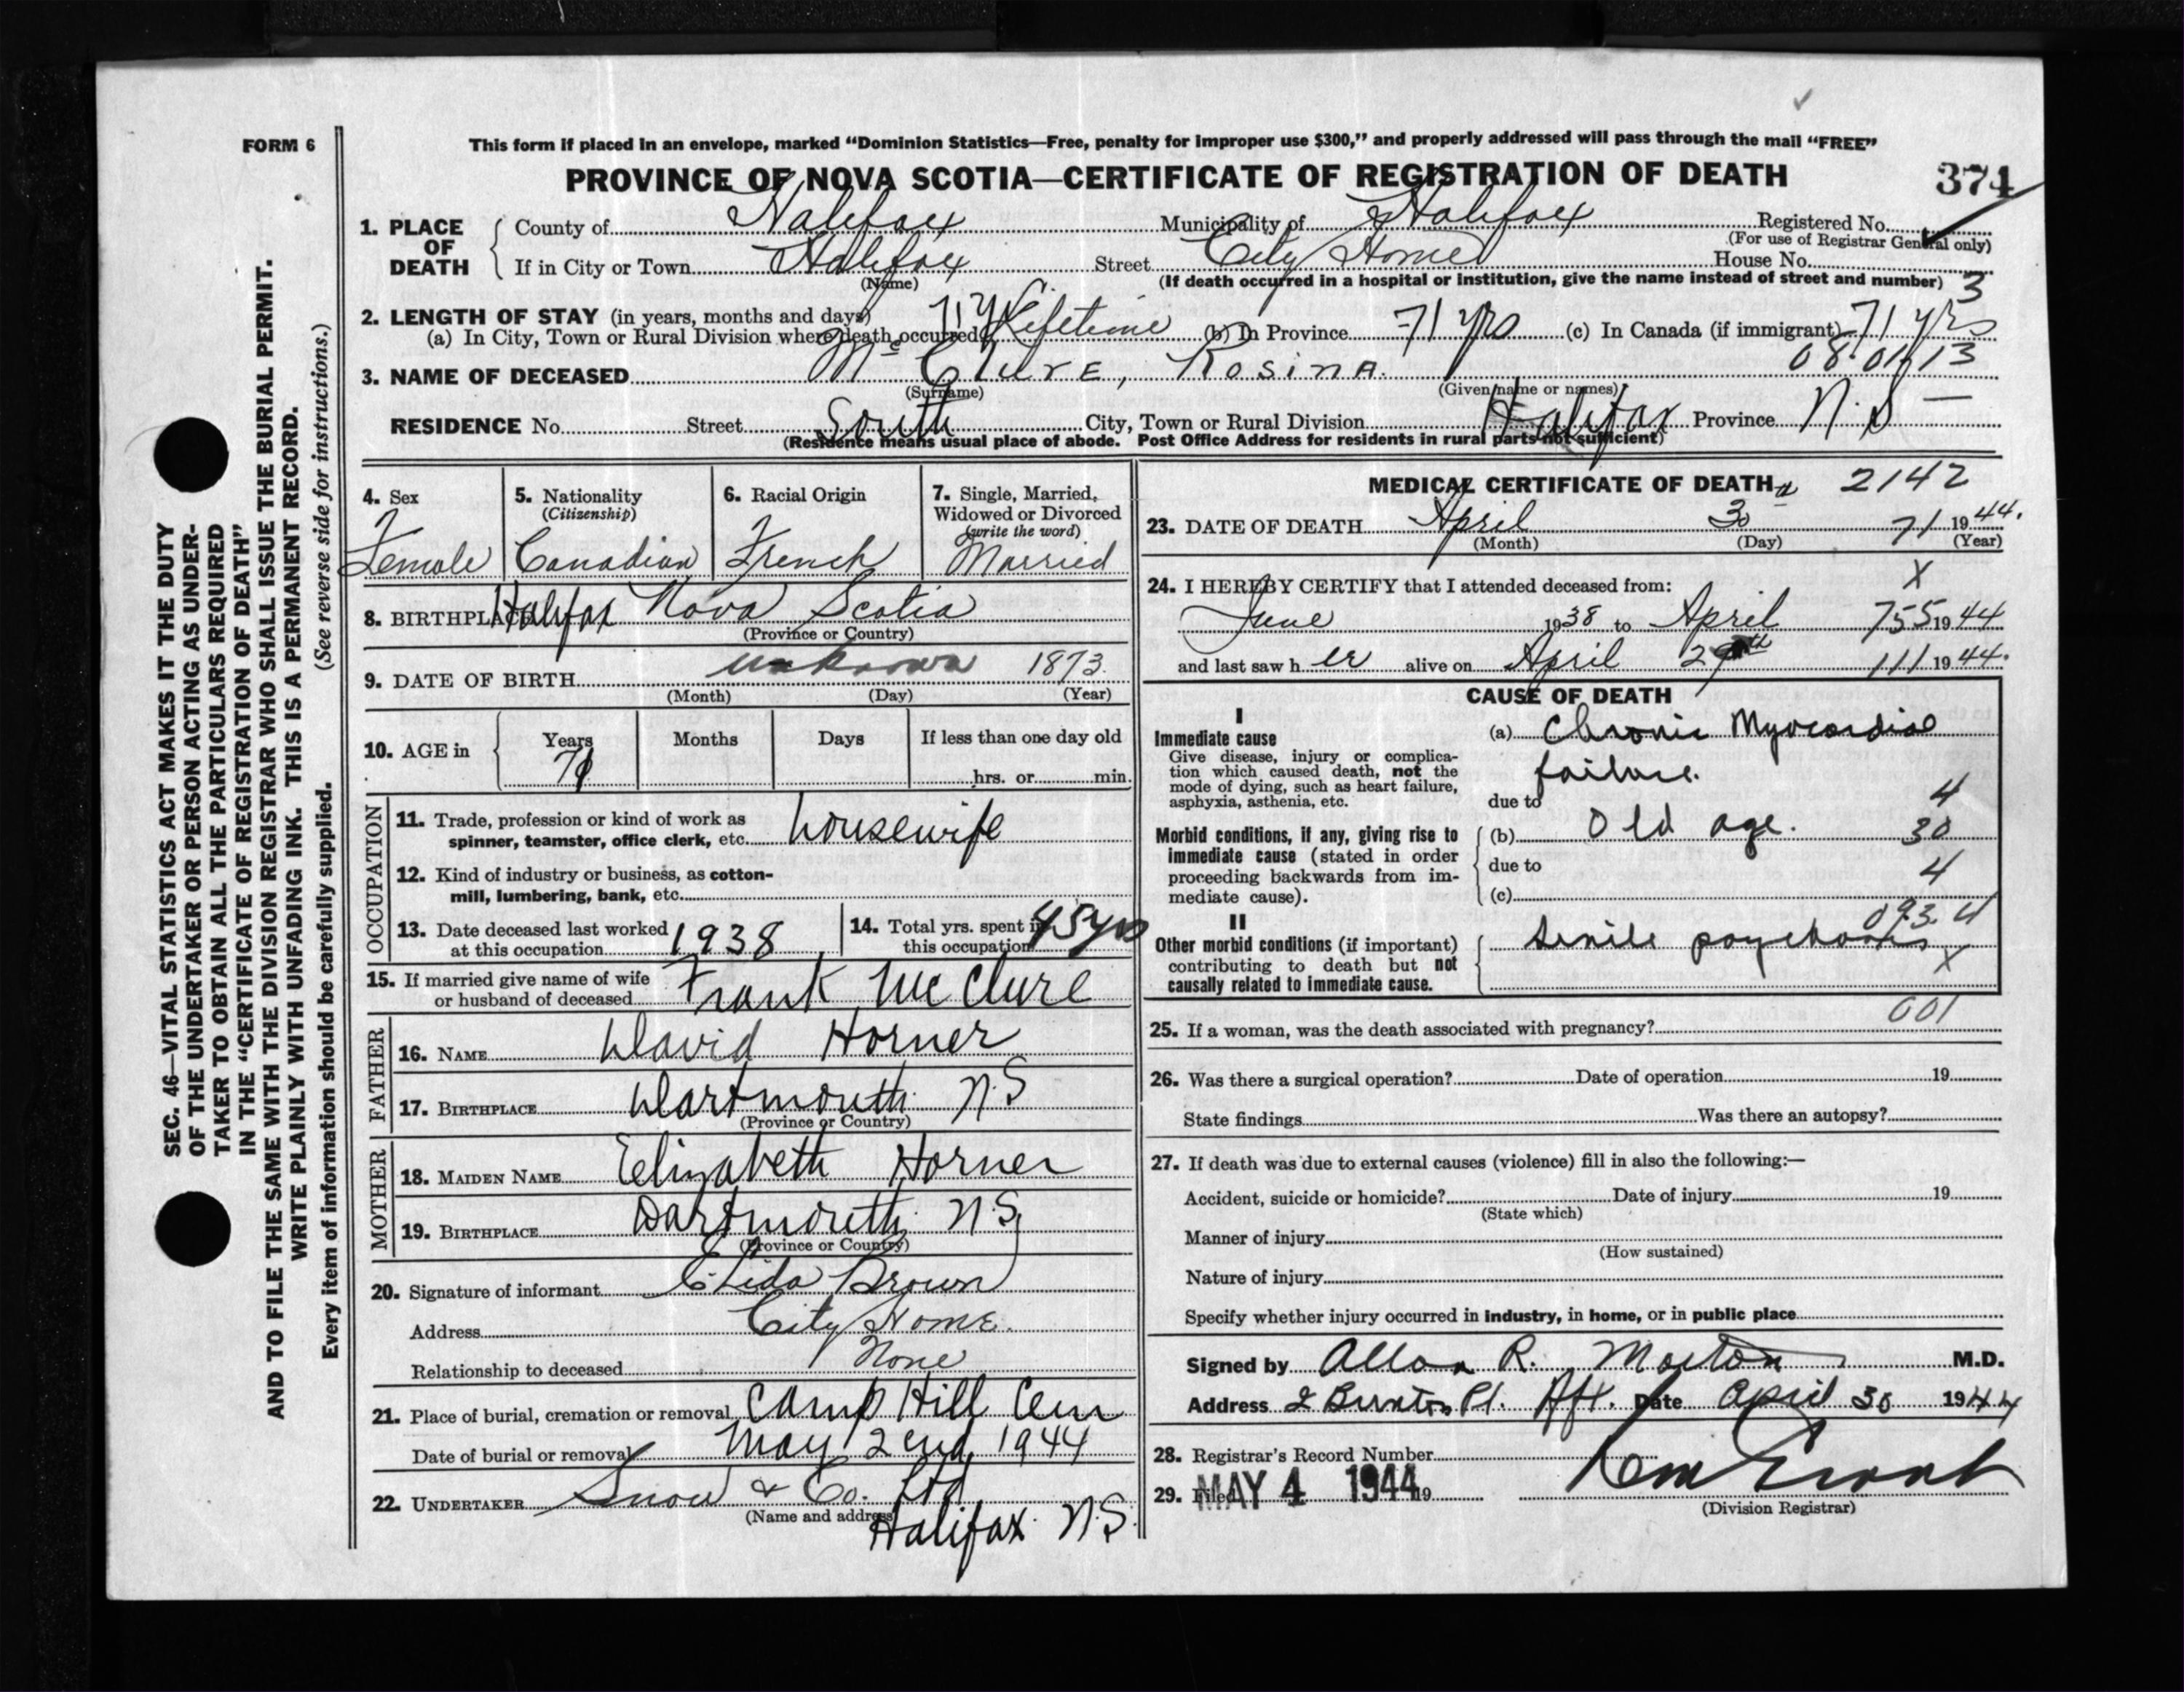 FORM 6
This form if placed in an envelope, marked “Dominion Statistics—Free, penalty for improper use $300,” and properly addressed will pass through the mail “FREE”
PROVINCE OF NOVA SCOTIA—CERTIFICATE OF REGISTRATION OF DEATH
374
1. PLACE OF DEATH
County of Halifax Municipality of Halifax Registered No.
(For use of Registrar General only)
If in City or Town Halifax Street City Home House No.
(Name) (If death occurred in a hospital or institution, give the name instead of street and number) 3
2. LENGTH OF STAY (in years, months and days)
(a) In City, Town or Rural Division where death occurred Lifetime (b) In Province 71 yrs (c) In Canada (if immigrant) 71 yrs
3. NAME OF DECEASED Mc Clure, Rosina.
(Surname) (Given name or names)
RESIDENCE No. Street South City, Town or Rural Division Halifax Province N.S —
(Residence means usual place of abode. Post Office Address for residents in rural parts not sufficient)
4. Sex
Female
5. Nationality
(Citizenship)
Canadian
6. Racial Origin
French
7. Single, Married, Widowed or Divorced
(write the word)
Married
8. BIRTHPLACE Halifax Nova Scotia
(Province or Country)
9. DATE OF BIRTH unknown 1873.
(Month) (Day) (Year)
10. AGE in Years Months Days If less than one day old
71 hrs. or min.
OCCUPATION
11. Trade, profession or kind of work as
spinner, teamster, office clerk, etc. housewife
12. Kind of industry or business, as cotton-
mill, lumbering, bank, etc.
13. Date deceased last worked
at this occupation 1938
14. Total yrs. spent in
this occupation 45 yrs
15. If married give name of wife
or husband of deceased Frank McClure
FATHER
16. NAME David Horner
17. BIRTHPLACE Dartmouth N.S
(Province or Country)
MOTHER
18. MAIDEN NAME Elizabeth Horner
19. BIRTHPLACE Dartmouth N.S
(Province or Country)
20. Signature of informant Brown
Address City Home.
Relationship to deceased None
21. Place of burial, cremation or removal Camp Hill Cem
Date of burial or removal May 2nd, 1944
22. UNDERTAKER Snow & Co. Ltd
(Name and address)
Halifax N.S.
MEDICAL CERTIFICATE OF DEATH 2142
23. DATE OF DEATH April 30 71 1944.
(Month) (Day) (Year)
24. I HEREBY CERTIFY that I attended deceased from: X
June 1938 to April 755 1944
and last saw her alive on April 29th 111 1944.
CAUSE OF DEATH
I
Immediate cause
Give disease, injury or complica-
tion which caused death, not the
mode of dying, such as heart failure,
asphyxia, asthenia, etc.
(a) Chronic Myocardial
failure.
due to 4
Morbid conditions, if any, giving rise to
immediate cause (stated in order
proceeding backwards from im-
mediate cause).
(b) Old age. 30
due to 4
(c)
II
Other morbid conditions (if important)
contributing to death but not
causally related to immediate cause.
093 4
Senile psychosis X
25. If a woman, was the death associated with pregnancy? 001
26. Was there a surgical operation? Date of operation 19
State findings Was there an autopsy?
27. If death was due to external causes (violence) fill in also the following:—
Accident, suicide or homicide? Date of injury 19
(State which)
Manner of injury
(How sustained)
Nature of injury
Specify whether injury occurred in industry, in home, or in public place
Signed by Allan R. Morton M.D.
Address Pl. Hfx. Date April 30 1944
28. Registrar's Record Number
29. Filed MAY 4 1944 19
(Division Registrar)
SEC. 46—VITAL STATISTICS ACT MAKES IT THE DUTY
OF THE UNDERTAKER OR PERSON ACTING AS UNDER-
TAKER TO OBTAIN ALL THE PARTICULARS REQUIRED
IN THE “CERTIFICATE OF REGISTRATION OF DEATH”
AND TO FILE THE SAME WITH THE DIVISION REGISTRAR WHO SHALL ISSUE THE BURIAL PERMIT.
WRITE PLAINLY WITH UNFADING INK. THIS IS A PERMANENT RECORD.
Every item of information should be carefully supplied. (See reverse side for instructions.)